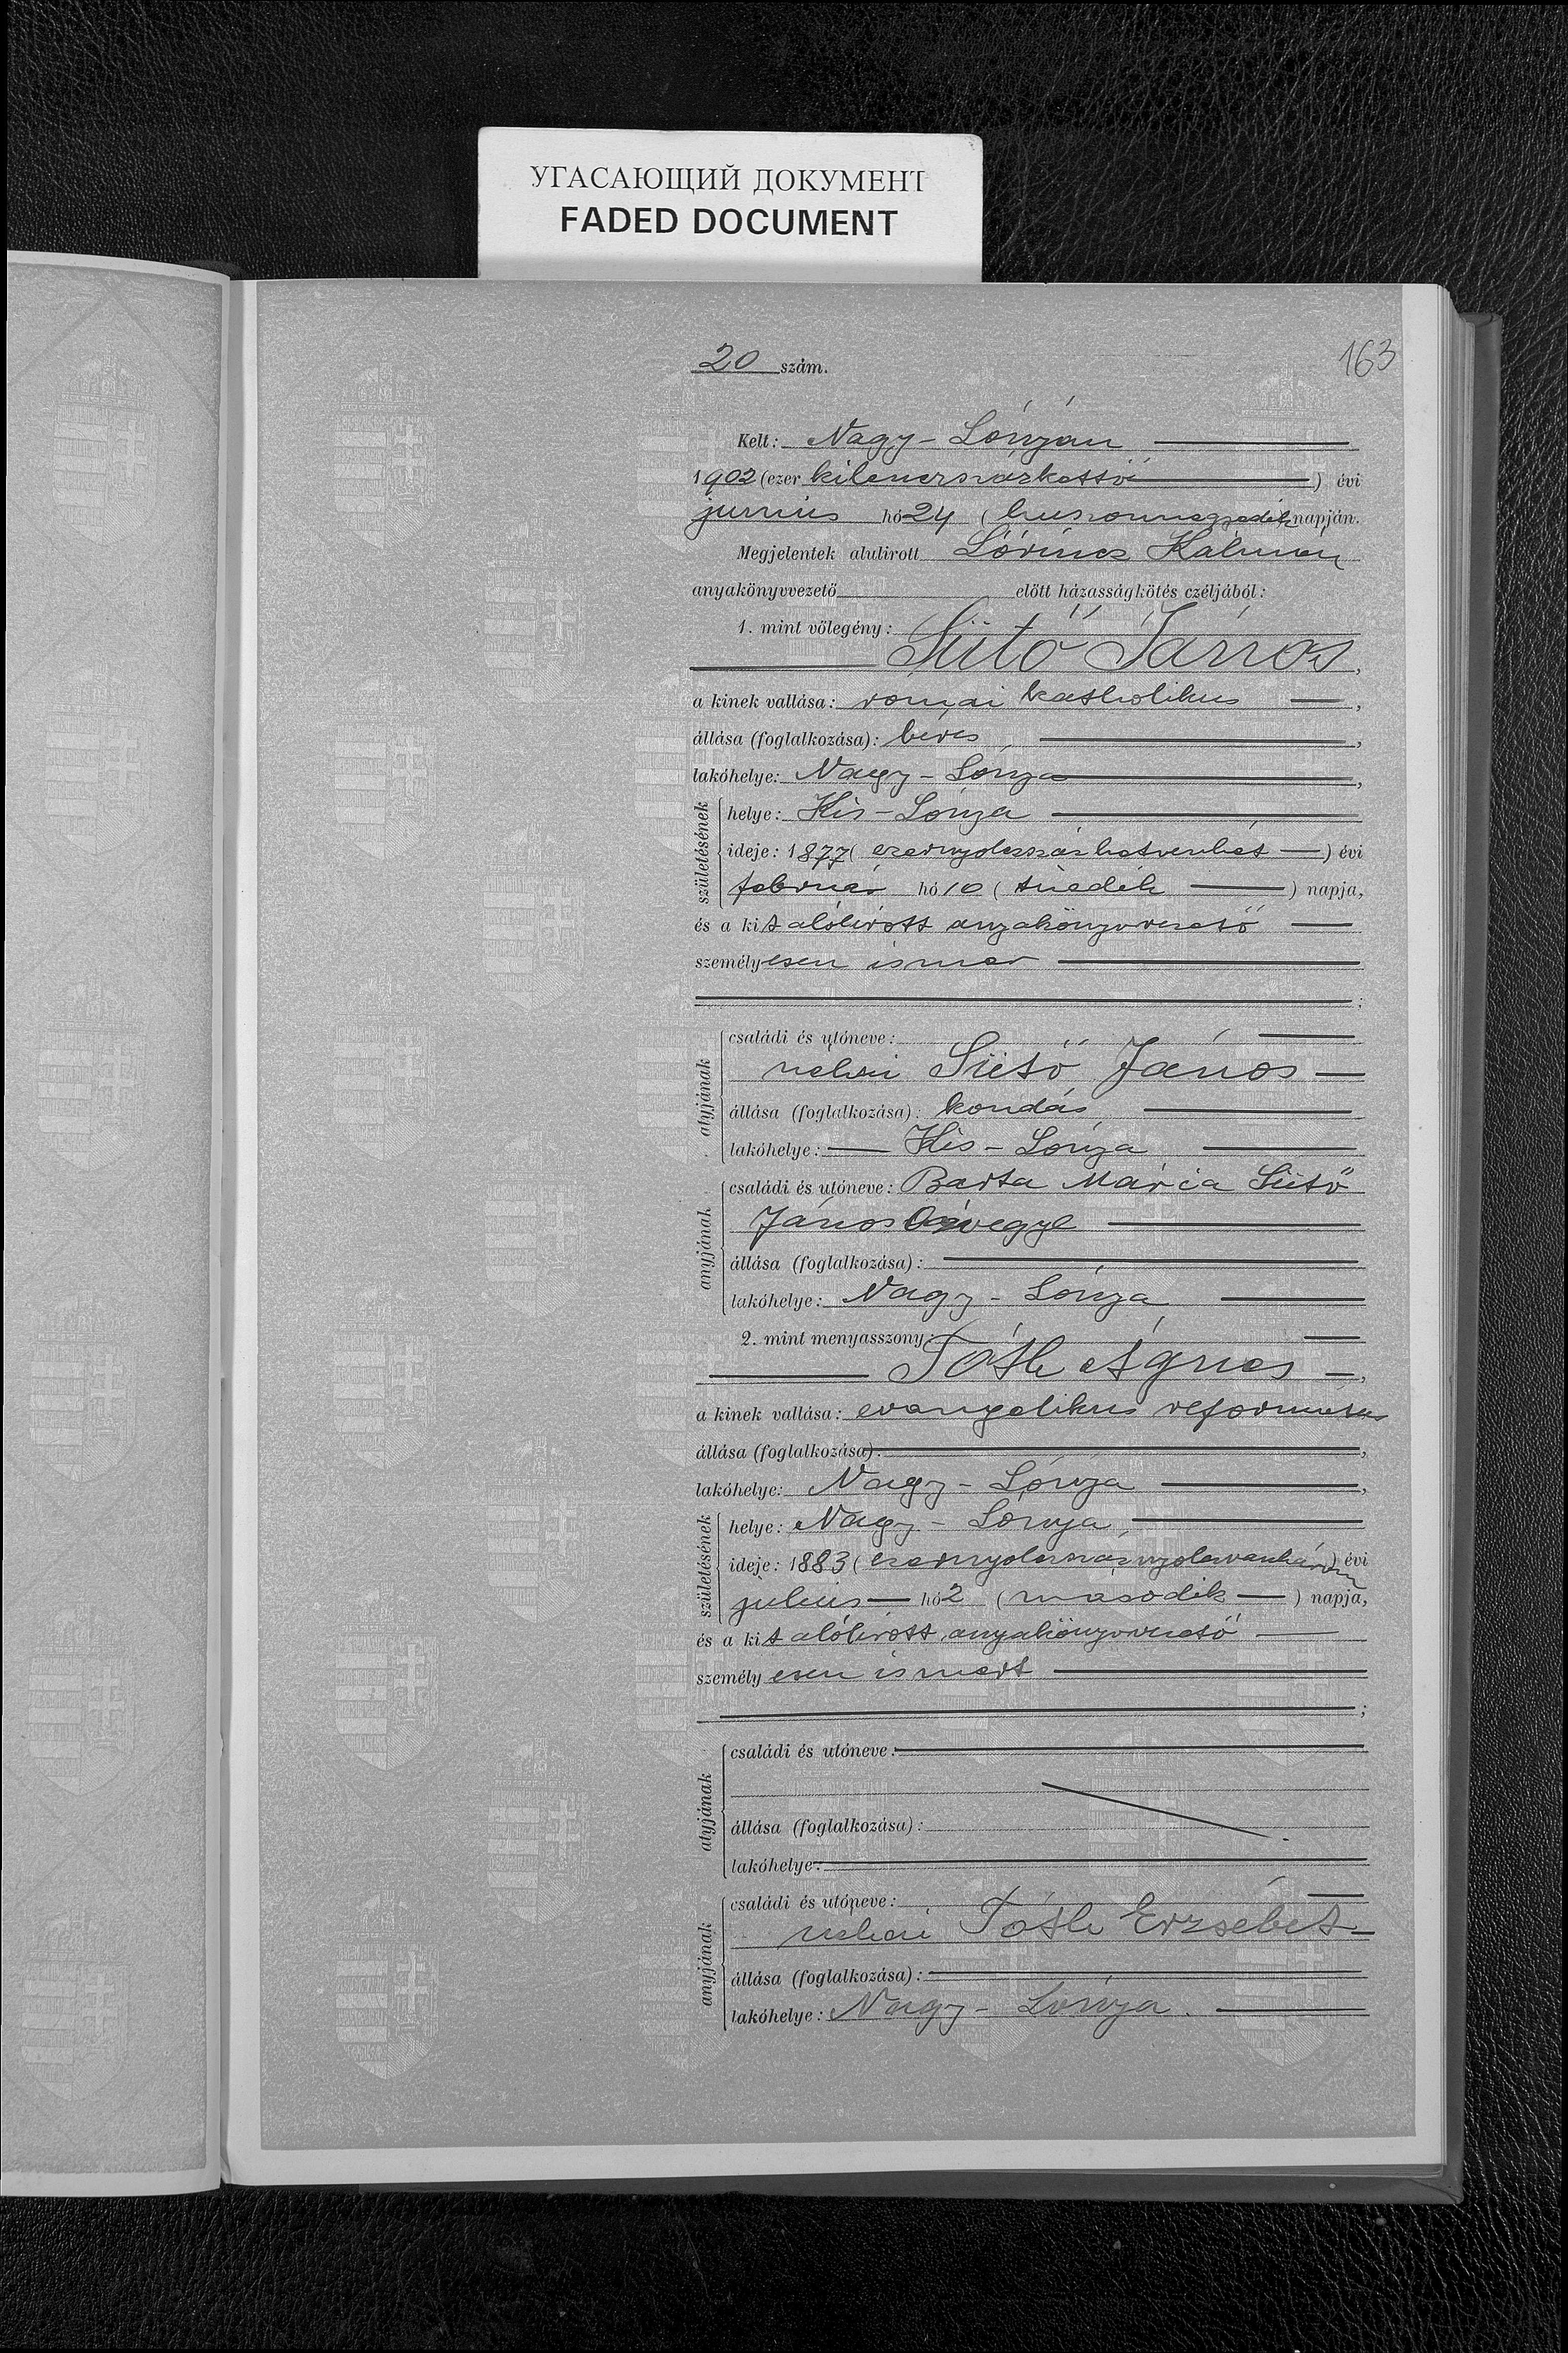 УГАСАЮЩИЙ ДОКУМЕНТ
FADED DOCUMENT
163
20 szám.
Kelt: Nagy-Lónyán
1902 (ezer kilenczszázkettő) évi
junius hó 24 (huszonnegyedik) napján.
Megjelentek alulirott Lőrincz Kálmán
anyakönyvvezető előtt házasságkötés czéljából:
1. mint vőlegény:
Sütő János,
a kinek vallása: római katholikus,
állása (foglalkozása): béres,
lakóhelye: Nagy-Lónya,
születésének
helye: Kis-Lónya
ideje: 1877 (ezernyolczszázhetvenhét) évi
február hó 10 (tizedik) napja,
és a kit alólirott anyakönyvvezető
személyesen ismer
;
atyjának
családi és utóneve:
néhai Sütő János
állása (foglalkozása): kondás
lakóhelye: Kis-Lónya
anyjának
családi és utóneve: Barta Mária Sütő
János özvegye
állása (foglalkozása):
lakóhelye: Nagy-Lónya
2. mint menyasszony:
Tóth Ágnes,
a kinek vallása: evangelikus református
állása (foglalkozása):,
lakóhelye: Nagy-Lónya,
születésének
helye: Nagy-Lónya
ideje: 1883 (ezernyolczszáznyolcvanhárom) évi
julius hó 2 (második) napja,
és a kit alólirott anyakönyvvezető
személyesen ismert
;
atyjának
családi és utóneve:
állása (foglalkozása):
lakóhelye:
anyjának
családi és utóneve:
néhai Tóth Erzsébet
állása (foglalkozása):
lakóhelye: Nagy-Lónya.